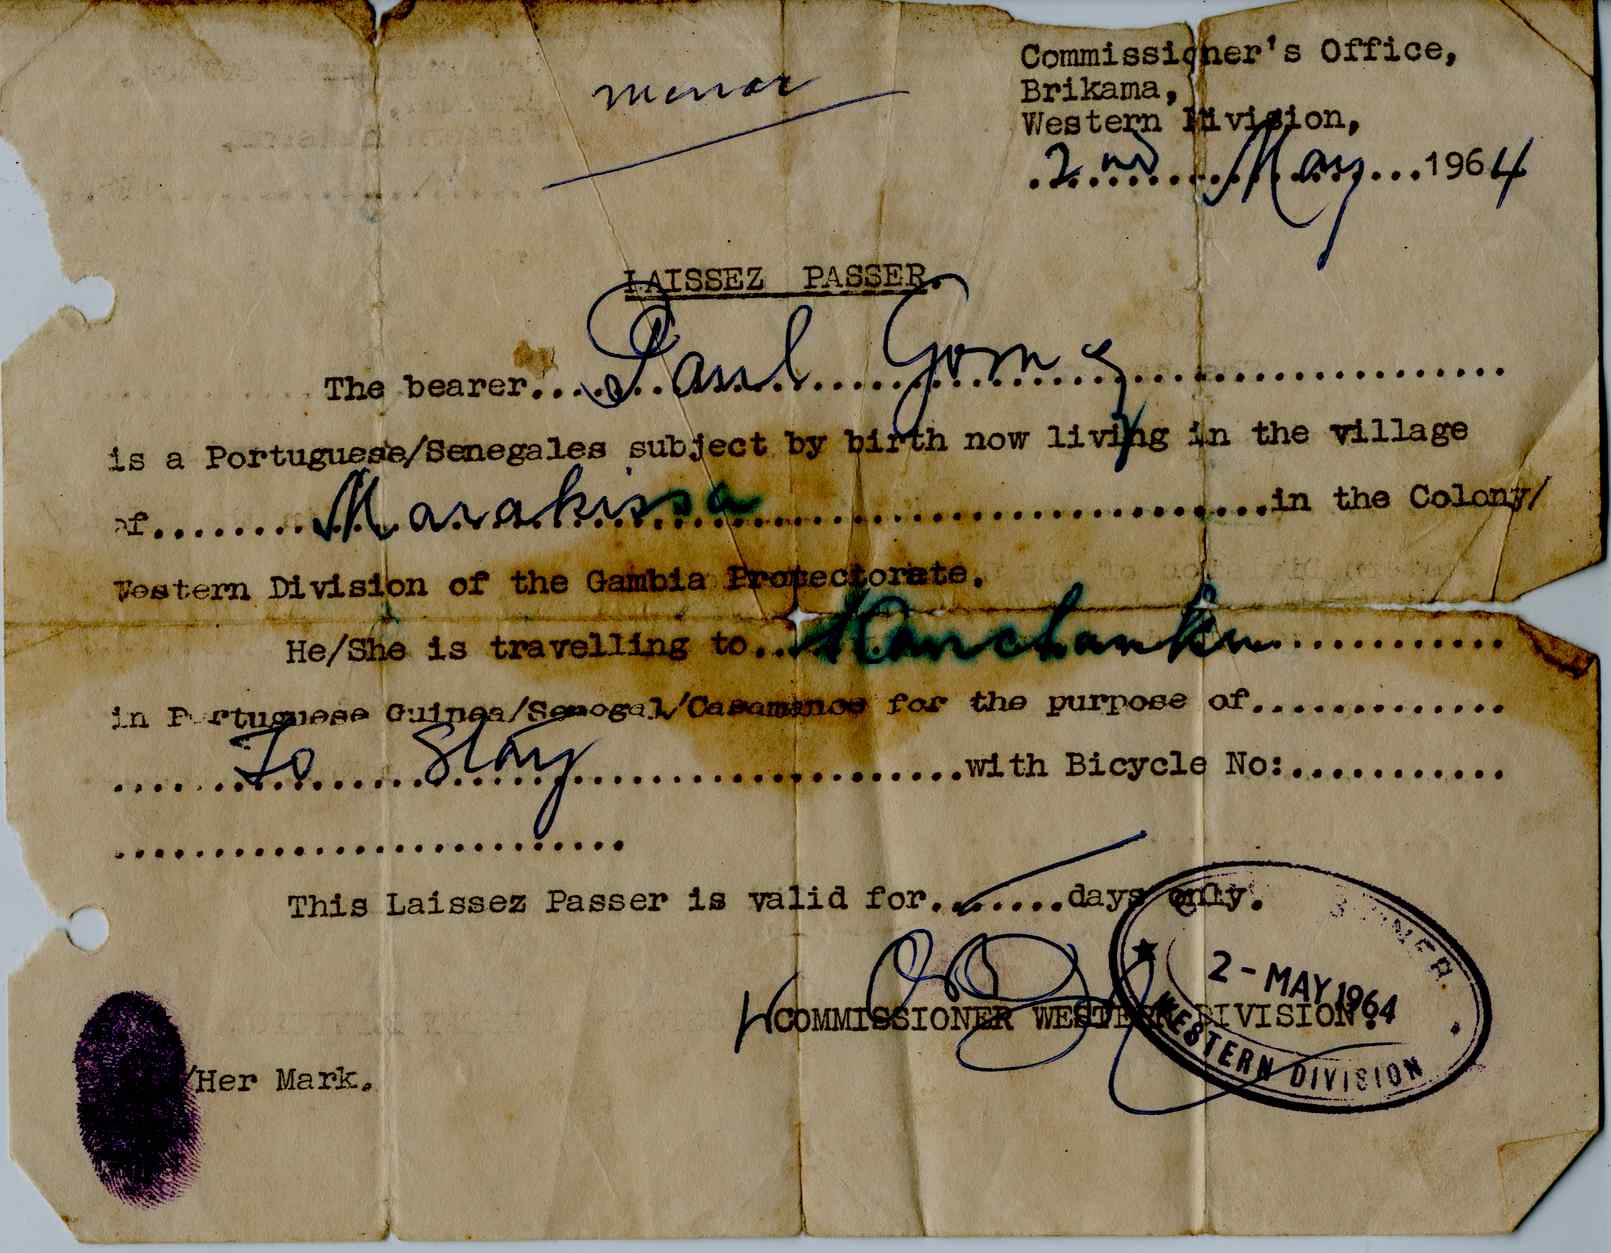 Commissioner's Office,
Brikama,
Western Division,
2nd May 1964
LAISSEZ PASSER.
The bearer... Paul Gomez
is a Portuguese/Senegales subject by birth now living in the village
of........Marakissa........in the Colony/
Western Division of the Gambia Protectorate.
He/She is travelling to...
in Portuguese Guinea/Senegal/Casamance for the purpose of.............
To Stay........with Bicycle No:...........
...........................
This Laissez Passer is valid for.......days only.
COMMISSIONER WESTERN DIVISION.
2-MAY 1964
WESTERN DIVISION
/Her Mark.